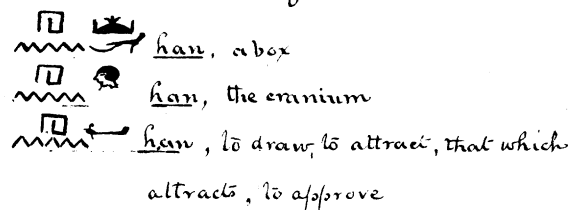 𓉔𓈖 han, a box
𓉔𓈖𓁶 han, the cranium
𓉔𓈖 han, to draw, to attract, that which
attracts, to approve